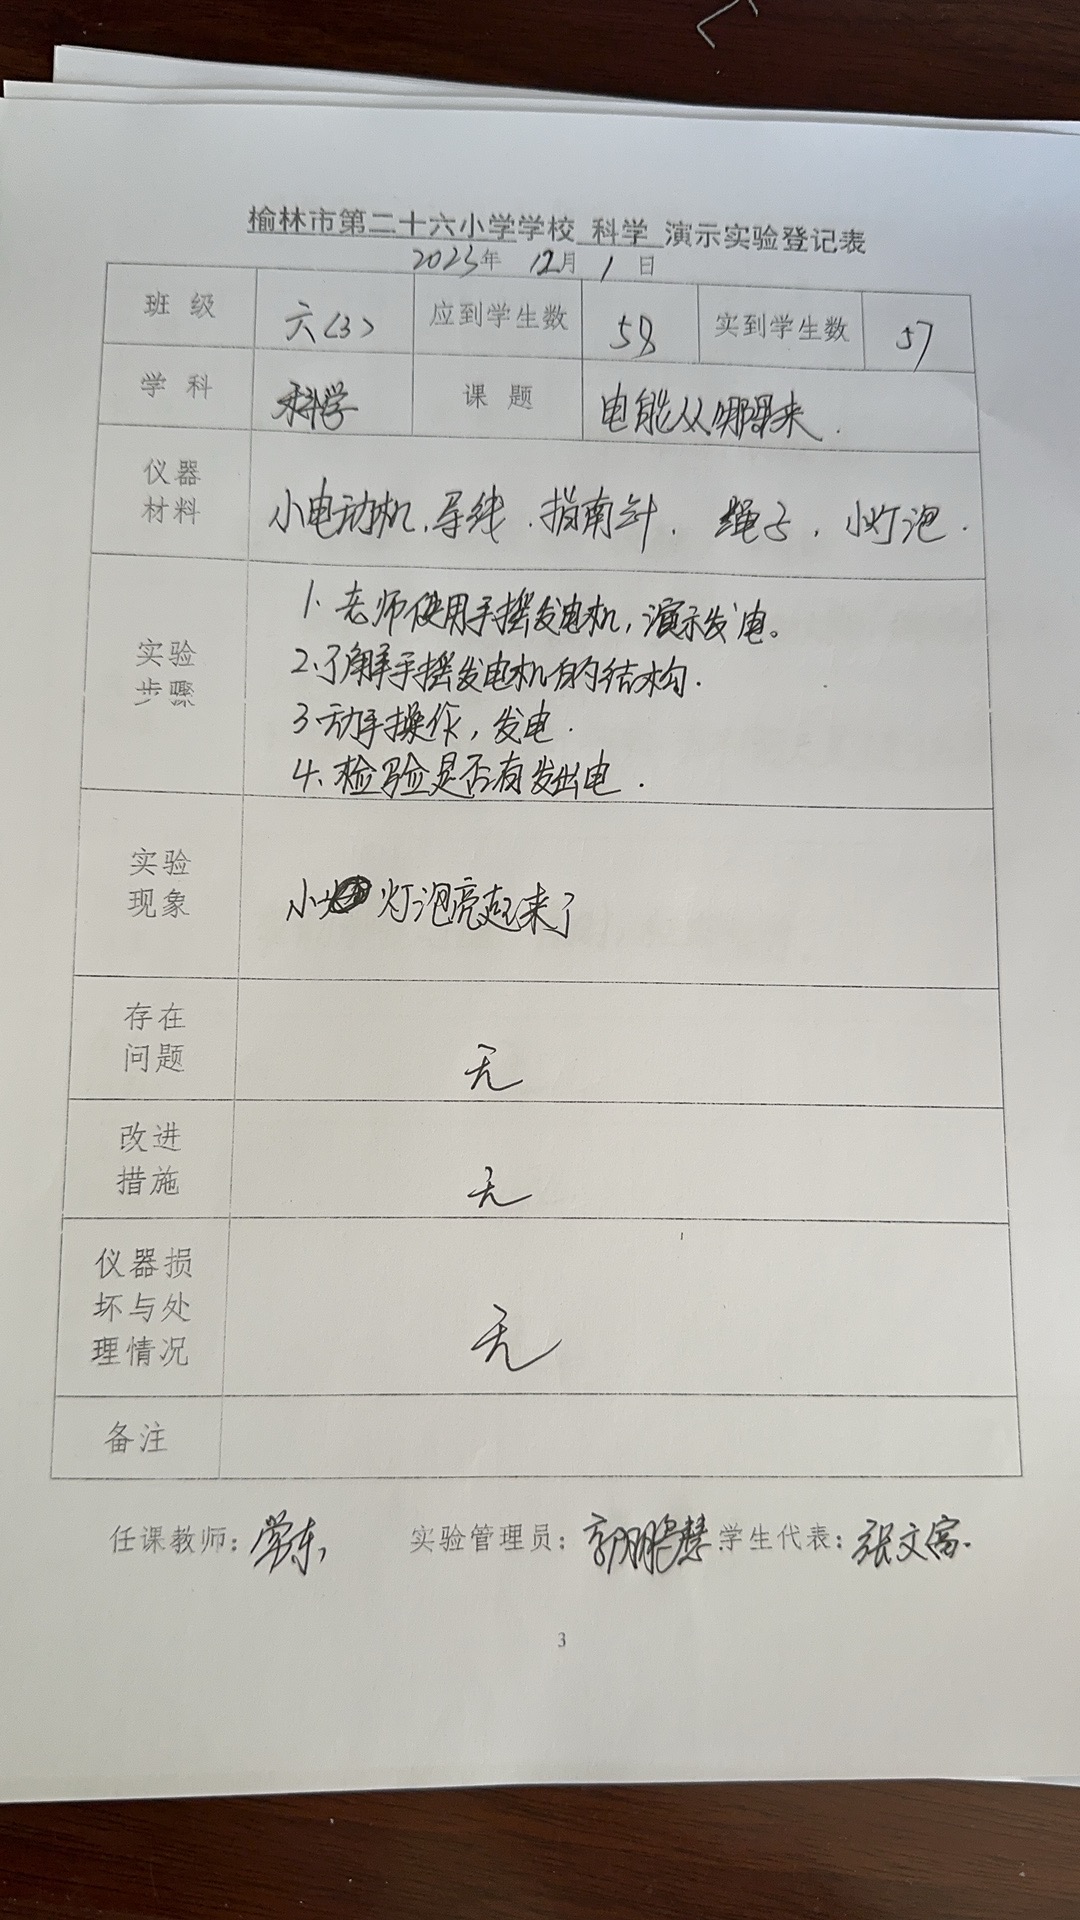 榆林市第二十六小学学校 科学 演示实验登记表
2023年 12月 1 日
班 级 六(3) 应到学生数 58 实到学生数 57
学 科 科学 课 题 电能从哪里来.
仪器
材料
小电动机、导线、指南针、绳子、小灯泡.
实验
步骤
1. 老师使用手摇发电机，演示发电。
2. 了解手摇发电机的结构.
3. 动手操作，发电.
4. 检验是否有发出电.
实验
现象
小灯泡亮起来了
存在
问题
无
改进
措施
无
仪器损
坏与处
理情况
无
备注
任课教师: 实验管理员: 学生代表: 张文富.
3